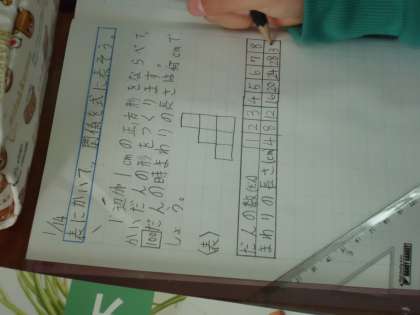 1/14
表にかいて、関係を式に表そう。
1辺が1cmの正方形をならべて、
かいだんの形をつくります。
100だんの時まわりの長さは何cmで
しょう。
〈表〉
だんの数(だん) 1 2 3 4 5 6 7 8
まわりの長さ(cm) 4 8 12 16 20 24 28 3